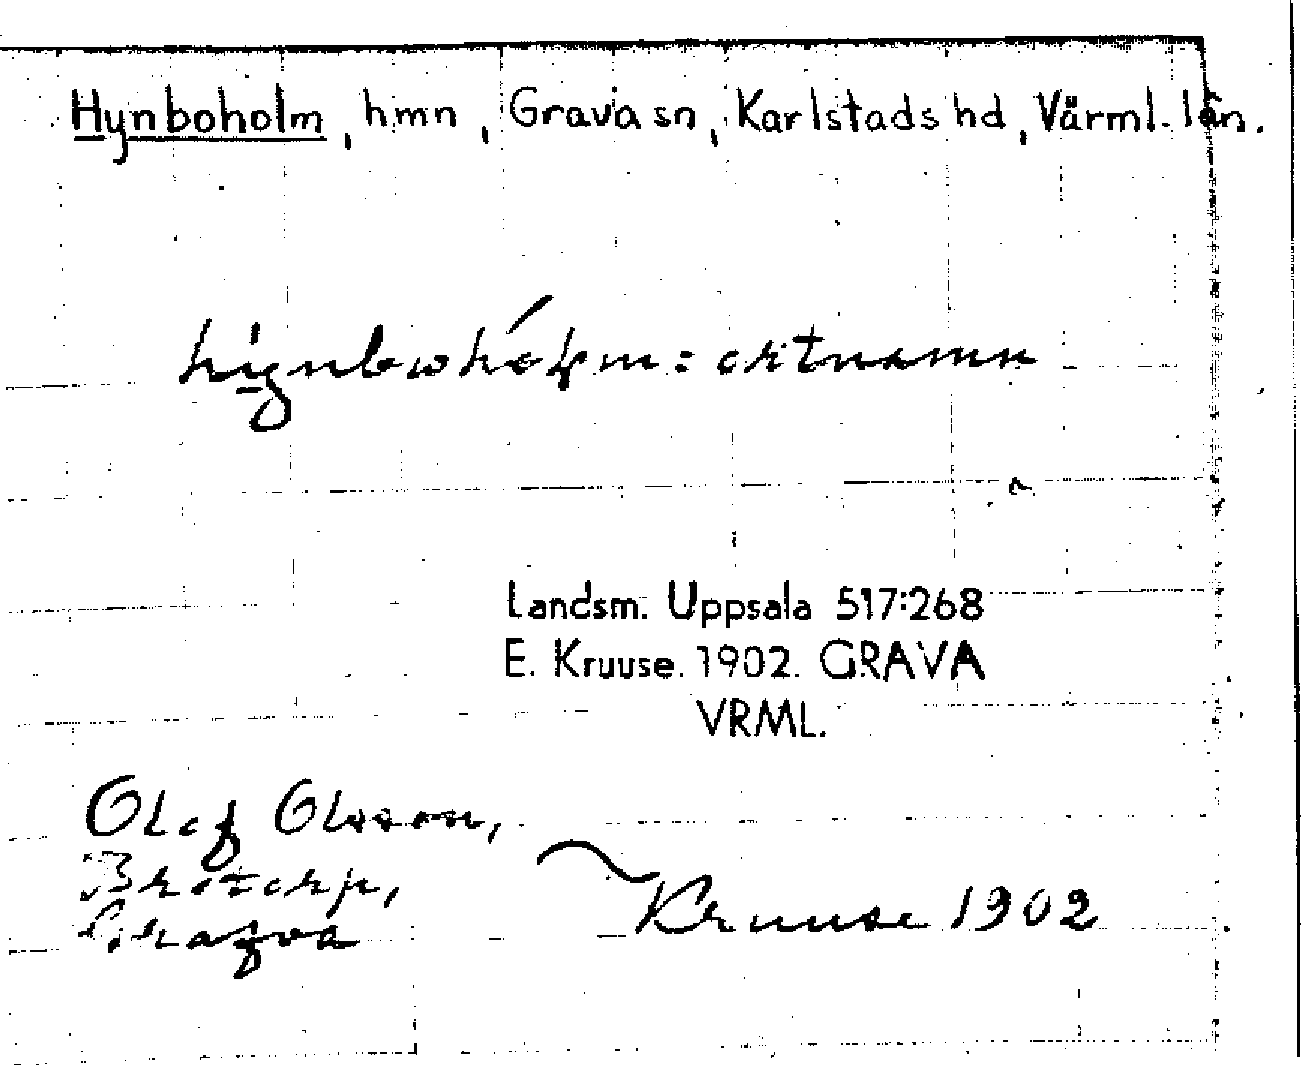 Hynboholm, hmn, Grava sn, Karlstads hd, Värml. län.
hynbwhólm: ortnamn
Landsm. Uppsala 517:268
E. Kruuse. 1902. GRAVA
VRML.
Olof Olsson,
Brotorp,
Grafva
Kruuse 1902